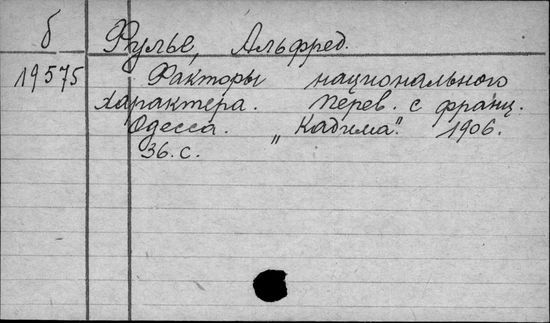 б
Фулье, Альфред.
19575
Факторы национального
характера. Перев. с франц.
Одесса. „Кадима". 1906.
36. с.